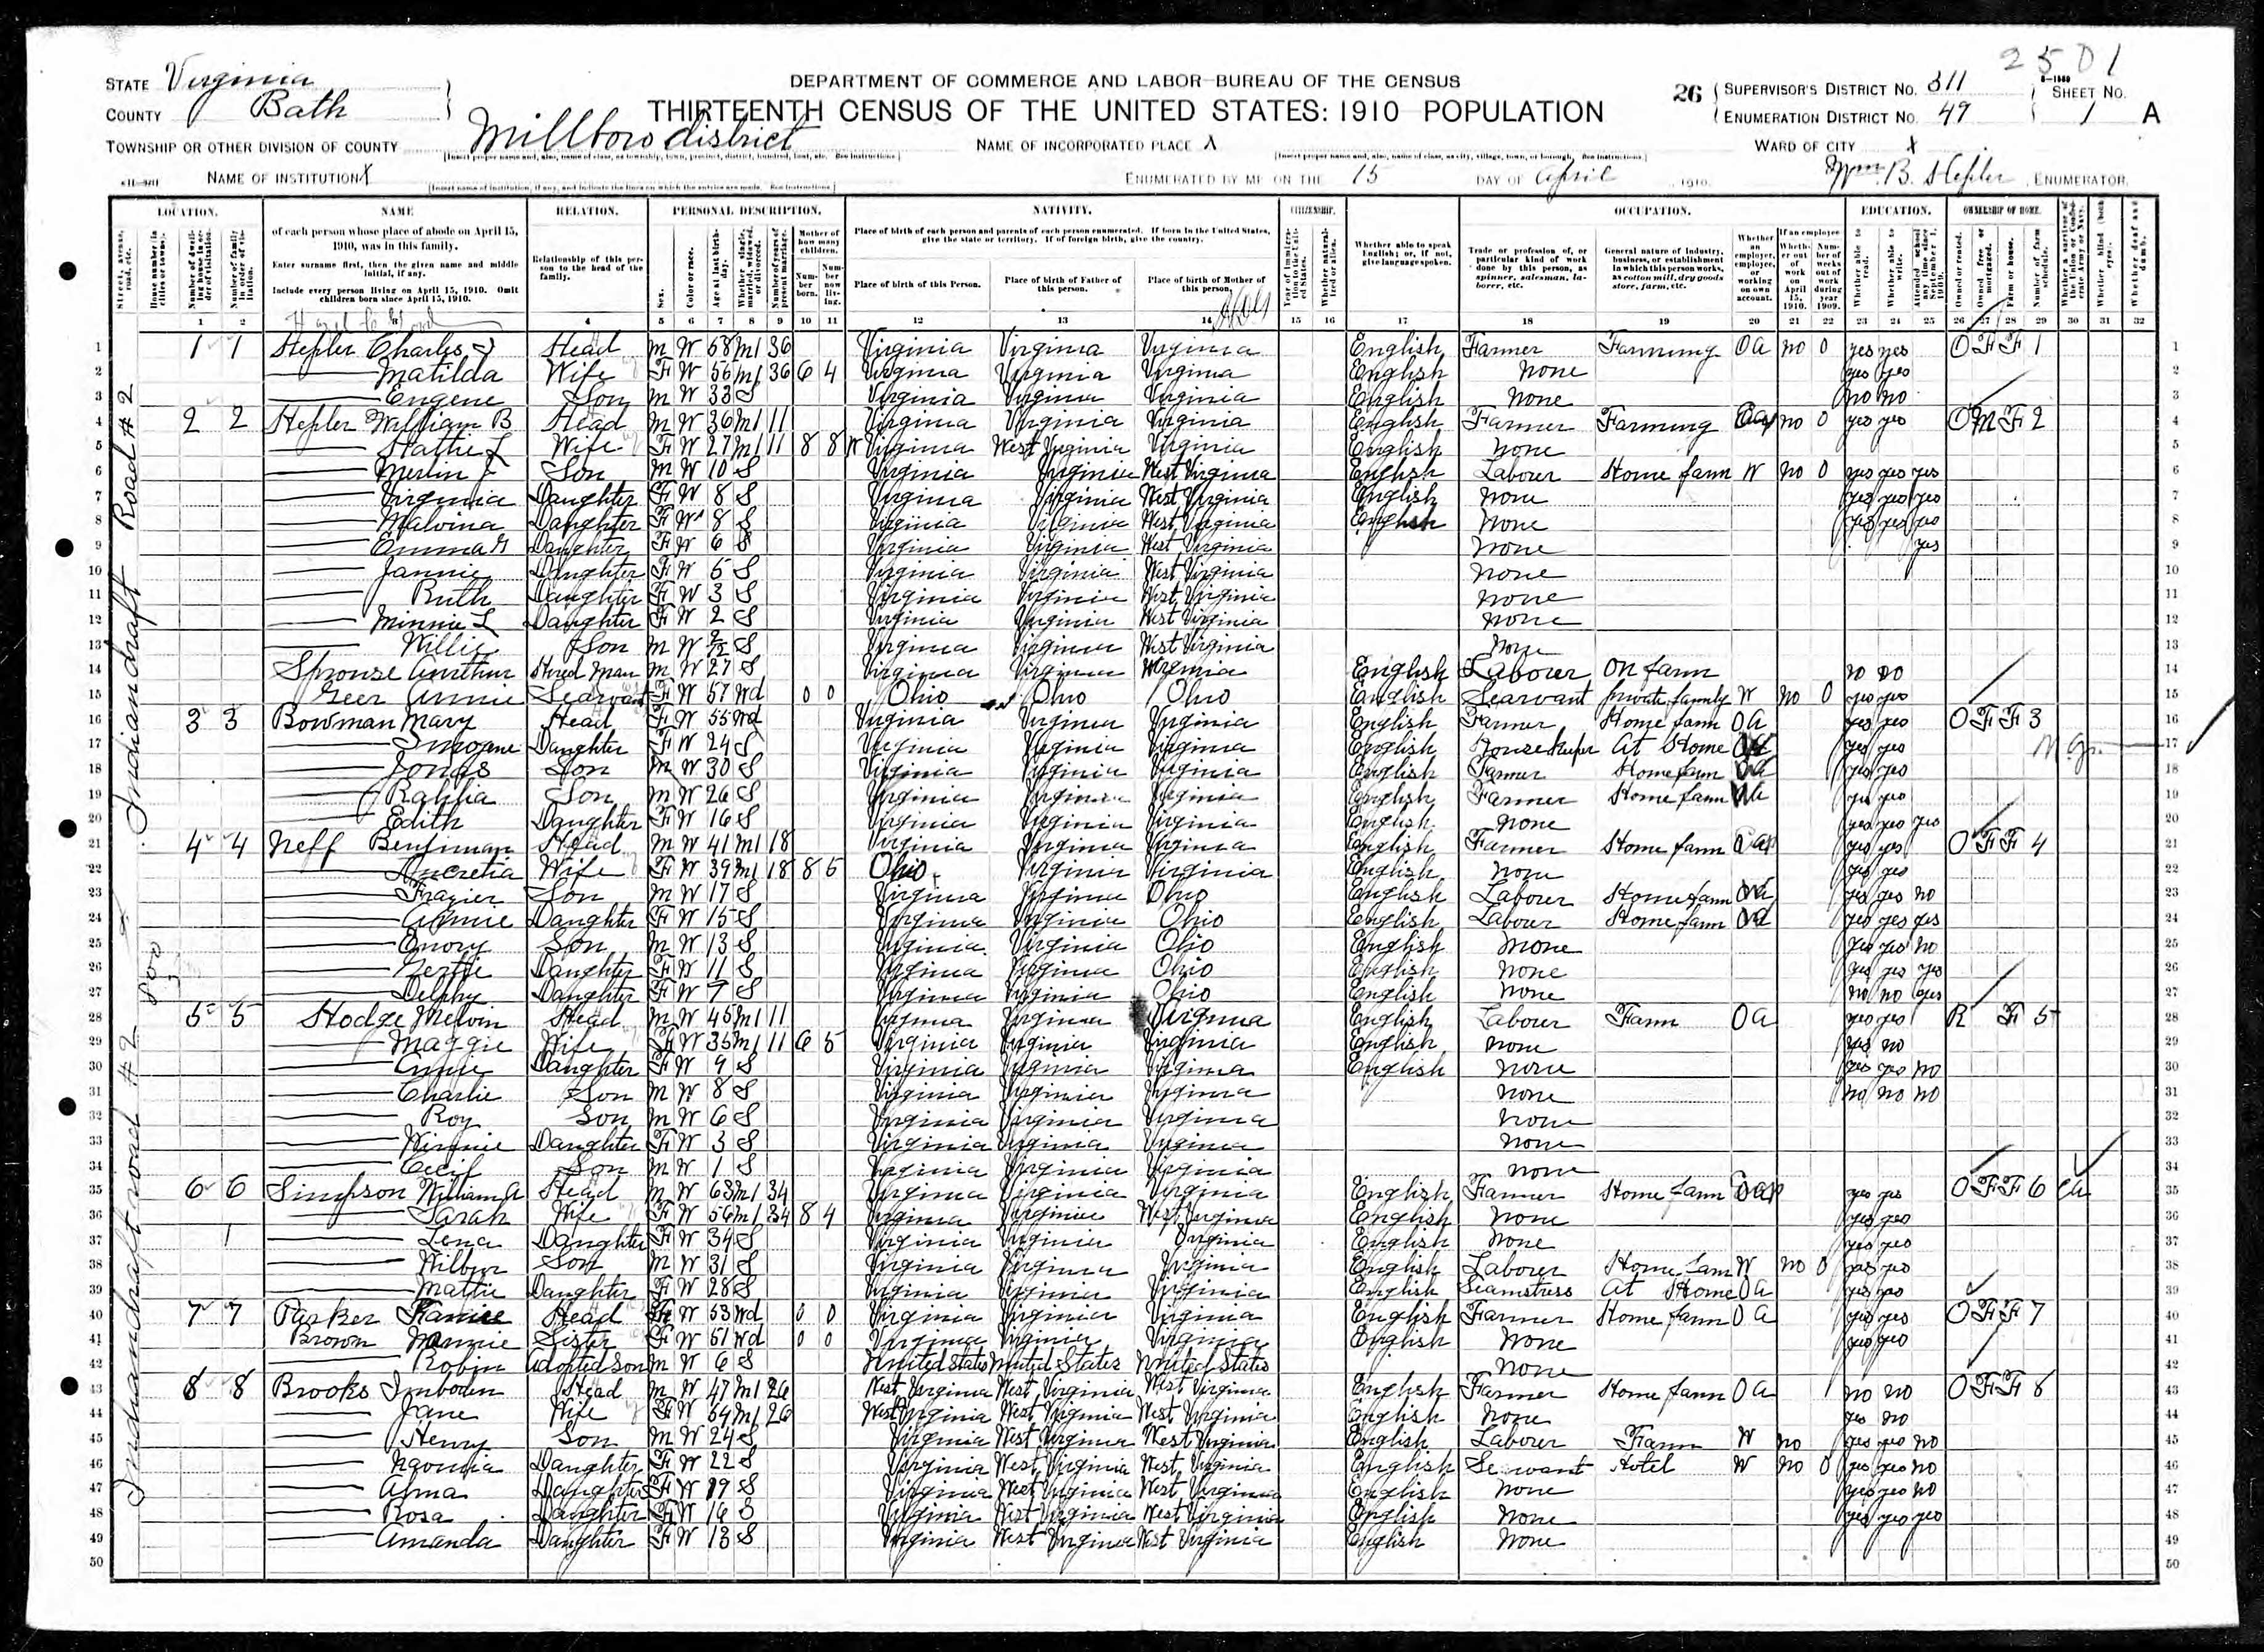 2501
STATE Virginia
COUNTY Bath
TOWNSHIP OR OTHER DIVISION OF COUNTY Millboro district
NAME OF INSTITUTION X
DEPARTMENT OF COMMERCE AND LABOR—BUREAU OF THE CENSUS
THIRTEENTH CENSUS OF THE UNITED STATES: 1910 POPULATION
NAME OF INCORPORATED PLACE X
ENUMERATED BY ME ON THE 15 DAY OF April, 1910.
26
SUPERVISOR'S DISTRICT No. 311
ENUMERATION DISTRICT No. 49
SHEET No. 1 A
WARD OF CITY X
Wm. B. Hepler, ENUMERATOR.
LOCATION. NAME RELATION. PERSONAL DESCRIPTION. NATIVITY. CITIZENSHIP. OCCUPATION. EDUCATION. OWNERSHIP OF HOME.
of each person whose place of abode on April 15, 1910, was in this family.
Enter surname first, then the given name and middle initial, if any.
Include every person living on April 15, 1910. Omit children born since April 15, 1910.
Relationship of this person to the head of the family.
Place of birth of each person and parents of each person enumerated. If born in the United States, give the state or territory. If of foreign birth, give the country.
Place of birth of this Person. Place of birth of Father of this person. Place of birth of Mother of this person.
Whether able to speak English; or, if not, give language spoken.
Trade or profession of, or particular kind of work done by this person, as spinner, salesman, laborer, etc.
General nature of industry, business, or establishment in which this person works, as cotton mill, dry goods store, farm, etc.
1 2 4 5 6 7 8 9 10 11 12 13 14 15 16 17 18 19 20 21 22 23 24 25 26 27 28 29 30 31 32
Indiandraft Road #2
Indiandraft road #2
1 1 1 Hepler Charles Head M W 58 M1 36 Virginia Virginia Virginia English Farmer Farming OA no 0 yes yes O F F 1
2 Matilda Wife F W 56 M1 36 6 4 Virginia Virginia Virginia English none yes yes
3 Eugene Son M W 33 S Virginia Virginia Virginia English none no no
4 2 2 Hepler William B Head M W 36 M1 11 Virginia Virginia Virginia English Farmer Farming no 0 yes yes O M F 2
5 Wife F W 27 M1 11 8 8 W Virginia West Virginia Virginia English none
6 Merlin J Son M W 10 S Virginia Virginia West Virginia English Labour Home farm W no 0 yes yes yes
7 Virginia Daughter F W 8 S Virginia Virginia West Virginia English none yes yes yes
8 Malvina Daughter F W 8 S Virginia Virginia West Virginia English none yes yes yes
9 Emma Daughter F W 6 S Virginia Virginia West Virginia none yes
10 Jannie Daughter F W 5 S Virginia Virginia West Virginia none
11 Ruth Daughter F W 3 S Virginia Virginia West Virginia none
12 Minnie L Daughter F W 2 S Virginia Virginia West Virginia none
13 Willie Son M W S Virginia Virginia West Virginia none
14 Sprouse Aurthur Hired Man M W 27 S Virginia Virginia Virginia English Labourer On farm no no
15 Geer Annie Searvant F W 57 Wd 0 0 Ohio Ohio Ohio English Searvant private family W no 0 yes yes
16 3 3 Bowman Mary Head F W 55 Wd Virginia Virginia Virginia English Farmer Home farm OA yes yes O F F 3
17 Daughter F W 24 S Virginia Virginia Virginia English At Home yes yes
18 Jonas Son M W 30 S Virginia Virginia Virginia English Farmer Home farm yes yes
19 Son M W 26 S Virginia Virginia Virginia English Farmer Home farm yes yes
20 Edith Daughter F W 16 S Virginia Virginia Virginia English none yes yes yes
21 4 4 Neff Head M W 41 M1 18 Virginia Virginia Virginia English Farmer Home farm yes yes O F F 4
22 Lucretia Wife F W 39 M1 18 8 5 Ohio Virginia Virginia English none yes yes
23 Frazier Son M W 17 S Virginia Virginia Ohio English Labour Home farm yes yes no
24 Annie Daughter F W 15 S Virginia Virginia Ohio English Labour Home farm yes yes yes
25 Emory Son M W 13 S Virginia Virginia Ohio English none yes yes no
26 Daughter F W 11 S Virginia Virginia Ohio English none yes yes yes
27 Delphy Daughter F W 7 S Virginia Virginia Ohio English none no no yes
28 5 5 Hodge Melvin Head M W 45 M1 11 Virginia Virginia Virginia English Labour Farm OA yes yes R F 5
29 Maggie Wife F W 35 M1 11 6 5 Virginia Virginia Virginia English none yes no
30 Annie Daughter F W 9 S Virginia Virginia Virginia English none yes yes no
31 Charlie Son M W 8 S Virginia Virginia Virginia none no no no
32 Roy Son M W 6 S Virginia Virginia Virginia none
33 Daughter F W 3 S Virginia Virginia Virginia none
34 Cecil Son M W 1 S Virginia Virginia Virginia none
35 6 6 Simpson William A Head M W 63 M1 34 Virginia Virginia Virginia English Farmer Home farm yes yes O F F 6 CA
36 Sarah Wife F W 56 M1 34 8 4 Virginia Virginia West Virginia English none yes yes
37 Lena Daughter F W 34 S Virginia Virginia Virginia English none yes yes
38 Wilbur Son M W 31 S Virginia Virginia Virginia English Labourer Home farm W no 0 yes yes
39 Mattie Daughter F W 28 S Virginia Virginia Virginia English Seamstress At Home OA yes yes
40 7 7 Parker Fannie Head F W 53 Wd 0 0 Virginia Virginia Virginia English Farmer Home farm OA yes yes O F F 7
41 Brown Nannie Sister F W 51 Wd 0 0 Virginia Virginia Virginia English none yes yes
42 Robin Adopted Son M W 6 S United States United States United States none
43 8 8 Brooks Imboden Head M W 47 M1 26 West Virginia West Virginia West Virginia English Farmer Home farm OA no no O F F 8
44 Jane Wife F W 54 M1 26 West Virginia West Virginia West Virginia English none yes no
45 Henry Son M W 24 S Virginia West Virginia West Virginia English Labour Farm W no yes yes no
46 Naomia Daughter F W 22 S Virginia West Virginia West Virginia English Servant Hotel W no 0 yes yes no
47 Alma Daughter F W 19 S Virginia West Virginia West Virginia English none yes yes no
48 Rosa Daughter F W 16 S Virginia West Virginia West Virginia English none yes yes yes
49 Amanda Daughter F W 13 S Virginia West Virginia West Virginia English none
50